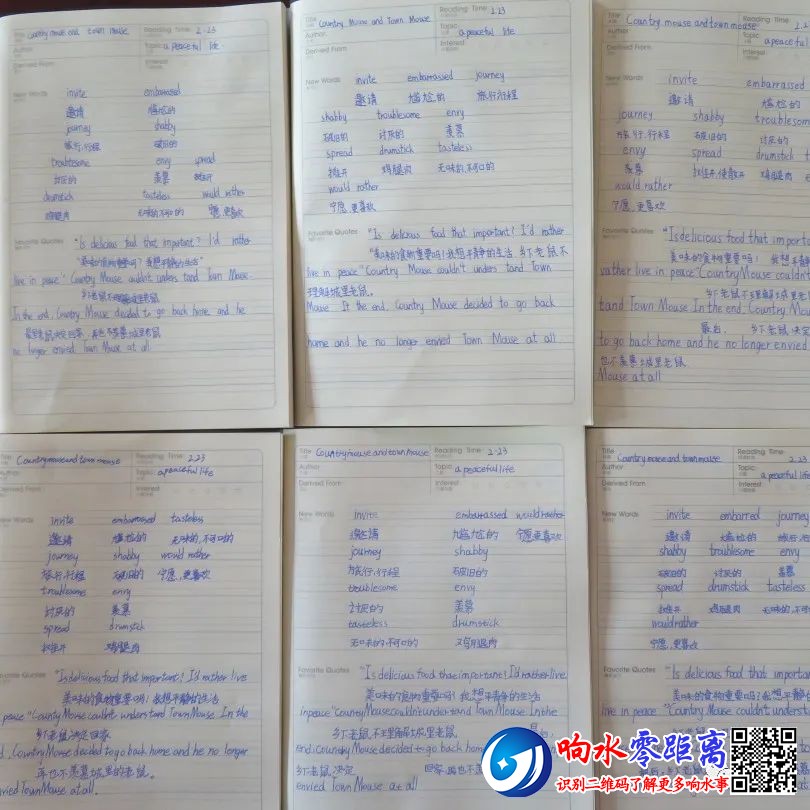 Title Country mouse and town mouse Reading Time: 2.23
Author Topic: a peaceful life
Derived From Interest
New Words invite embarrassed
邀请 尴尬的
journey shabby
旅行,行程 破旧的
troublesome envy spread
讨厌的 羡慕
drumstick tasteless would rather
鸡腿肉 无味的,不可口的 宁愿,更喜欢
Favorite Quotes "Is delicious food that important? I'd rather
"美味的食物重要吗?我想平静的生活"
live in peace" Country Mouse couldn't understand Town Mouse.
乡老鼠不理解城里老鼠
In the end, Country Mouse decided to go back home and he
no longer envied Town Mouse at all
Title Country Mouse and Town Mouse Reading Time: 2.23
Author: Topic: a peaceful life
Derived From Interest
New Words invite embarrassed journey
邀请 尴尬的 旅行,行程
shabby troublesome envy
破旧的 讨厌的 羡慕
spread drumstick tasteless
鸡腿肉 无味的,不可口的
would rather
宁愿,更喜欢
Favorite Quotes "Is delicious food that important? I'd rather
"美味的食物重要吗?我想平静的生活,乡下老鼠不
live in peace" Country Mouse couldn't unders tand Town
理解城里老鼠。
Mouse If the end, Country Mouse decided to go back
home and he no longer envied Town Mouse at all
Title Country mouse and town mouse
Author Topic a peaceful
Derived From Interest
New Words invite embarrassed
邀请 尴尬的
journey shabby troublesom
旅行,行程 破旧的 讨厌的
envy spread drumstick
羡慕 鸡腿肉
would rather
宁愿,更喜欢
Favorite Quotes "Is delicious food that import
美味的食物重要吗? 我想平静
rather live in peace" Country Mouse couldn't
乡下老鼠不理解城里老鼠
tand Town Mouse In the end, Country Mou
最后, 乡下老鼠决定
to go back home and he no longer envied
也不羡慕城里老鼠
Mouse at all
Title Country mouse and town mouse Reading Time: 2.23
Author Topic: a peaceful life
Derived From Interest
New Words invite embarrassed tasteless
邀请 尴尬的 无味的,不可口的
journey shabby would rather
旅行,行程 破旧的 宁愿,更喜欢
troublesome envy
讨厌的 羡慕
spread drumstick
鸡腿肉
Favorite Quotes "Is delicious food that important? I'd rather live
美味的食物重要吗?我想平静的生活
peace" Country Mouse couldn't understand Town Mouse. In the
乡老鼠决定回家
Country Mouse decided to go back home and he no longer
再也不羡慕城里的老鼠。
envied Town Mouse at all.
Title Country mouse and town mouse Reading Time: 2.23
Author Topic a peaceful life
Derived From Interest
New Words invite embarrassed would rather
邀请 尴尬的 宁愿,更喜欢
journey shabby
旅行,行程 破旧的
troublesome envy
讨厌的 羡慕
tasteless drumstick
无味的,不可口的 鸡腿肉
Favorite Quotes "Is delicious food that important? I'd rather live
美味的食物重要吗?我想平静的生活
in peace" Country Mouse couldn't understand Town Mouse In the
乡下老鼠不理解城里老鼠
end, Country Mouse decided to go back hom
乡老鼠决定
envied Town Mouse at all
Title Country mouse and town mouse Reading Time: 2.23
Author Topic: a peaceful life
Derived From Interest
New Words invite embarred journey
邀请 尴尬的
shabby troublesome envy
破旧的 讨厌的 羡慕
spread drumstick tasteless
鸡腿肉 无味的,不可
would rather
宁愿,更喜欢
Favorite Quotes "Is delicious food that importa
美味的食物重要吗?我想平静
live in peace" Country Mouse couldn't underst
响水零距离
识别二维码了解更多响水事